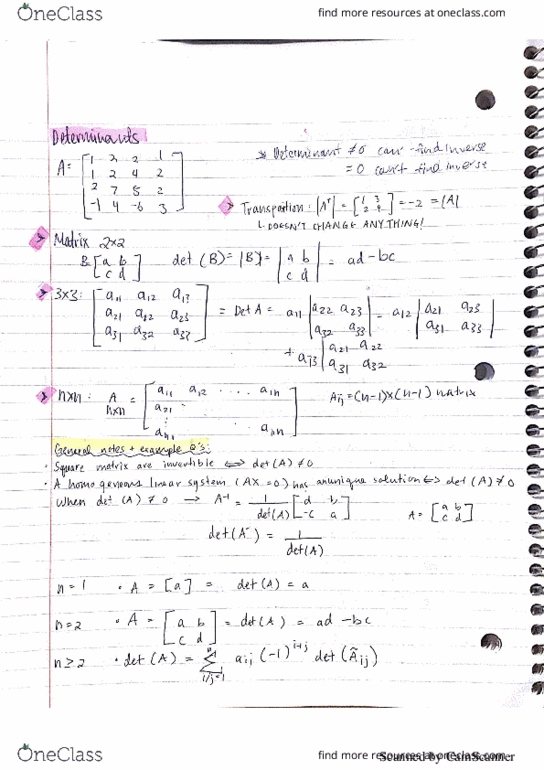 OneClass
find more resources at oneclass.com
Determinants
A= [1 3 2 1
1 2 4 2
2 7 5 2
-1 4 -6 3]
Determinant ≠0 can find inverse
=0 can't find inverse
Transpo : |Aᵀ|= [1 3 2 4] = -2 = |A|
↳ DOESN'T CHANGE ANYTHING!
Matrix 2x2
B [a b c d] det (B)= |B|= |a b c d| = ad-bc
3x3: [a11 a12 a13
a21 a22 a23
a31 a32 a33] = Det A = a11 |a22 a23 a32 a33| - a12 |a21 a23 a31 a33|
+ a13 |a21 a22 a31 a32|
nxn: A nxn = [a11 a12 . . . a1n
a21 .
an1 ann]
Aij = (n-1)x(n-1) matrix
General notes + example Q's:
• Square matrix are invertible ⟺ det(A) ≠0
• A homogeneous linear system (AX=0) has an unique solution ⟺ det (A) ≠0
When det (A) ≠ 0 → A-1 = 1/det(A) [d b -c a] A = [a b c d]
det(A-) = 1/det(A)
n=1 • A = [a] = det(A) = a
n=2 • A = [a b c d] = det(A) = ad -bc
n≥2 • det(A) = Σ i/j=1 aij (-1)^i+j det(Ãij)
OneClass
find more resources at oneclass.com
Scanned by CamScanner